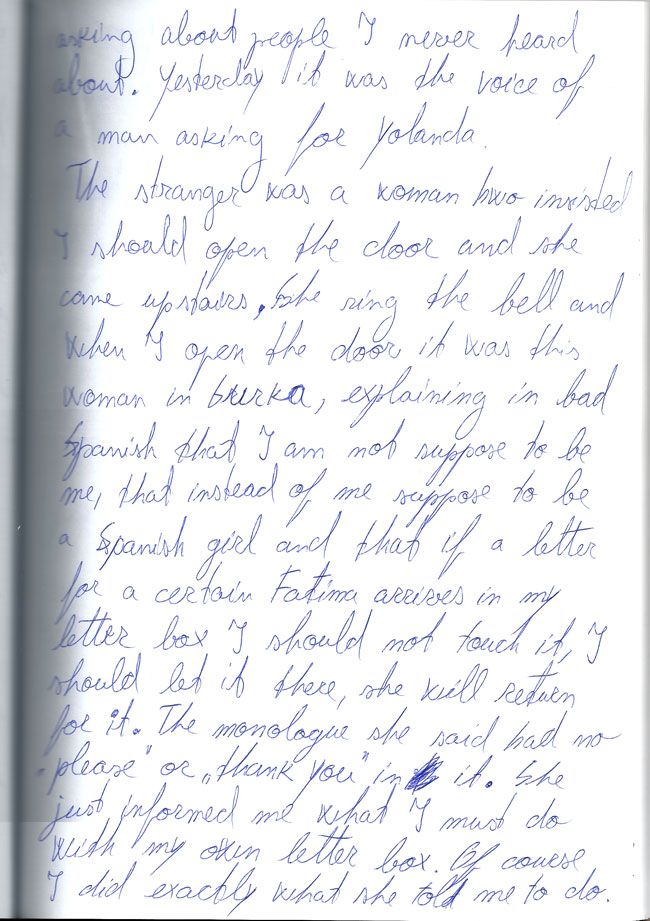 asking about people I never heard
about. Yesterday it was the voice of
a man asking for Yolanda.
The stranger was a woman hwo insisted
I should open the door and she
came upstairs, She ring the bell and
when I open the door it was this
woman in burka, explaining in bad
Spanish that I am not suppose to be
me, that instead of me suppose to be
a Spanish girl and that if a letter
for a certain Fatima arrives in my
letter box I should not touch it, I
should let it there, she will return
for it. The monologue she said had no
"please" or „thank you" in it. She
just informed me what I must do
with my own letter box. Of course
I did exactly what she told me to do.